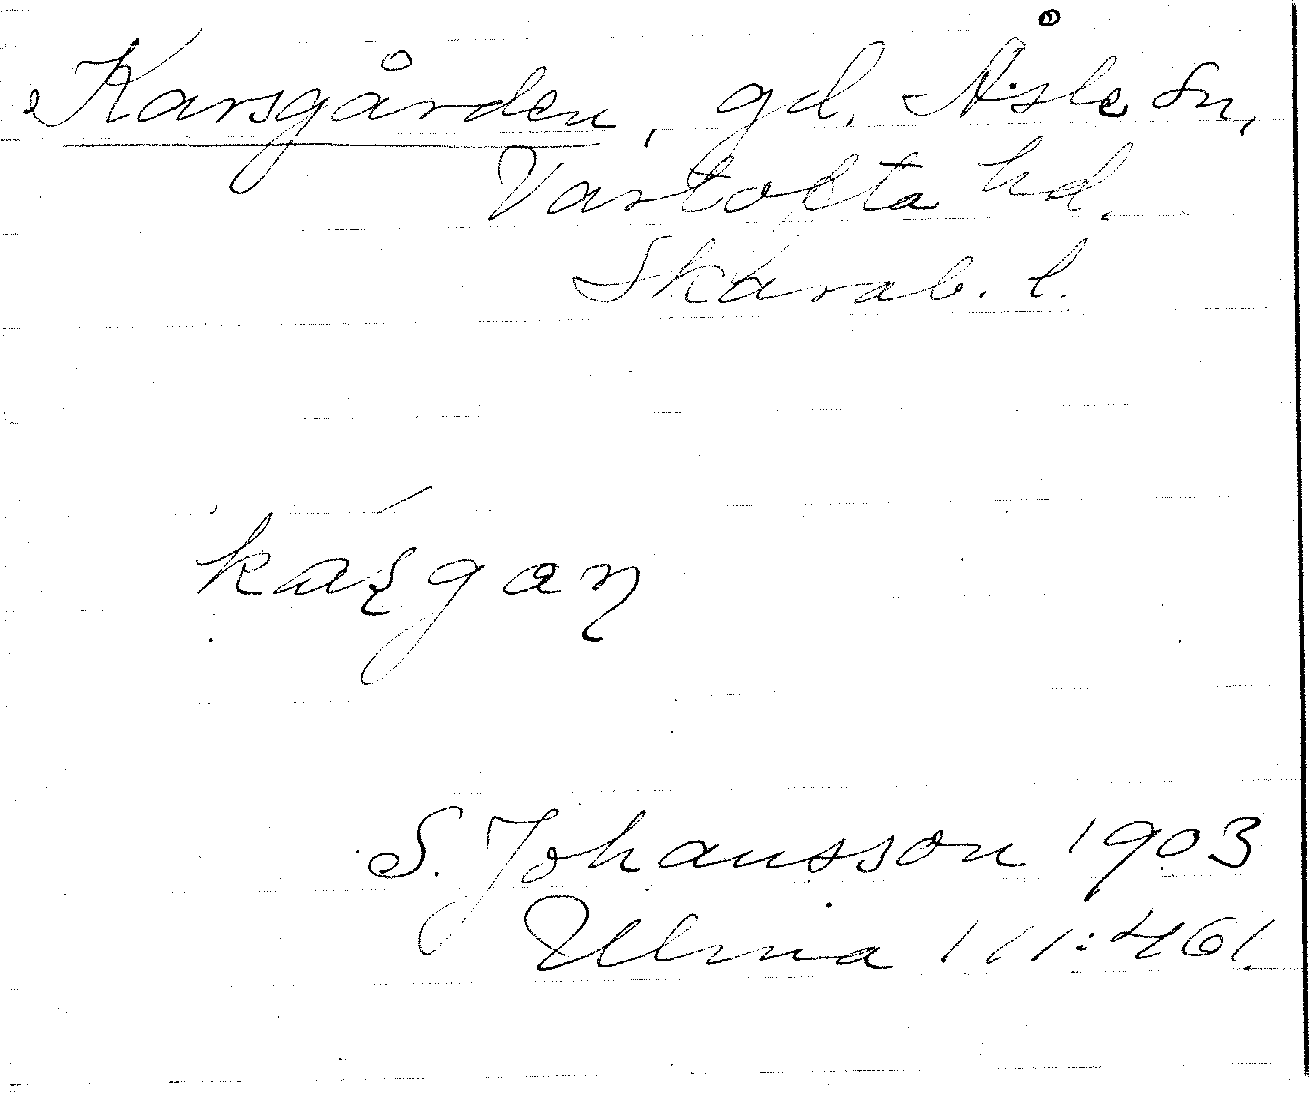 Karsgården, gd. Åsle sn,
Vartofta hd.
Skarab. l.
S. Johansson 1903
Ulma 111:461.